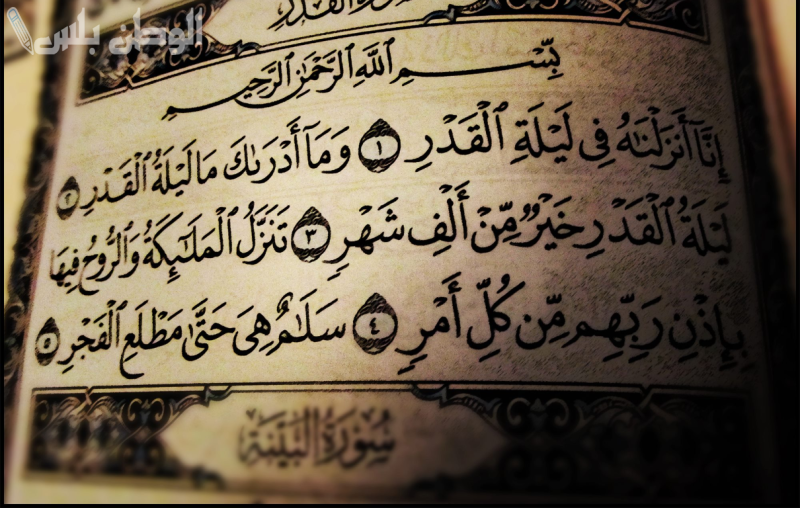 الوطن بلس
سورة القدر
بِسْمِ ٱللَّهِ ٱلرَّحْمَٰنِ ٱلرَّحِيمِ
إِنَّآ أَنزَلْنَٰهُ فِى لَيْلَةِ ٱلْقَدْرِ ١ وَمَآ أَدْرَىٰكَ مَا لَيْلَةُ ٱلْقَدْرِ ٢
لَيْلَةُ ٱلْقَدْرِ خَيْرٌ مِّنْ أَلْفِ شَهْرٍ ٣ تَنَزَّلُ ٱلْمَلَٰٓئِكَةُ وَٱلرُّوحُ فِيهَا
بِإِذْنِ رَبِّهِم مِّن كُلِّ أَمْرٍ ٤ سَلَٰمٌ هِىَ حَتَّىٰ مَطْلَعِ ٱلْفَجْرِ ٥
سُورَةُ البَيِّنَةِ